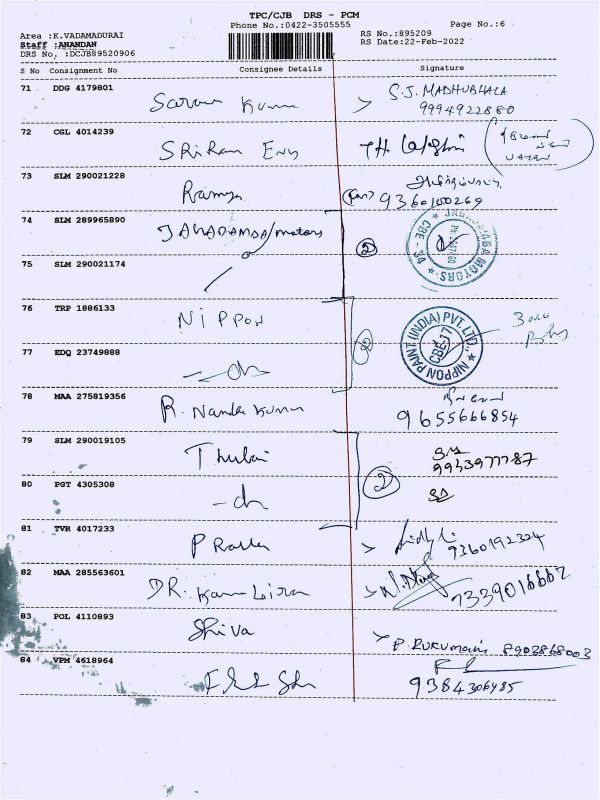 TPC/CJB DRS - PCM
Phone No.:0422-3505555
Page No.:6
Area :K.VADAMADURAI
RS No.:895209
Staff :ANANDAN
RS Date:22-Feb-2022
DRS No. :DCJB89520906
S No Consignment No Consignee Details Signature
71 DDG 4179801 Saravana Kumar S.J. MADHUBHALA
9994922880
72 CGL 4014239 SRi Ram Engg
73 SLM 290021228 Ramya 9360100269
74 SLM 289965890 JAGADAMBA motors 2
75 SLM 290021174
JAGADAMBA MOTORS
CBE - 34
76 TRP 1886133 NiPPON
NIPPON PAINT (INDIA) PVT. LTD.,
CBE-17
77 EDQ 23749888 - do
78 MAA 275819356 R. Nanda Kumar
9655666854
79 SLM 290019105 Thulasi 2
9943977787
80 PGT 4305308 - do
81 TVR 4017233 9360192324
82 MAA 285563601 DR. 7339016662
83 POL 4110893 Shiva P. RUKUMANi 8902868003
84 VPM 4618964
9384306485